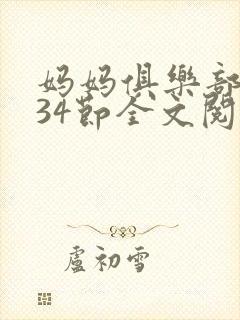 妈妈俱樂部
34節全文閱
盧初雪